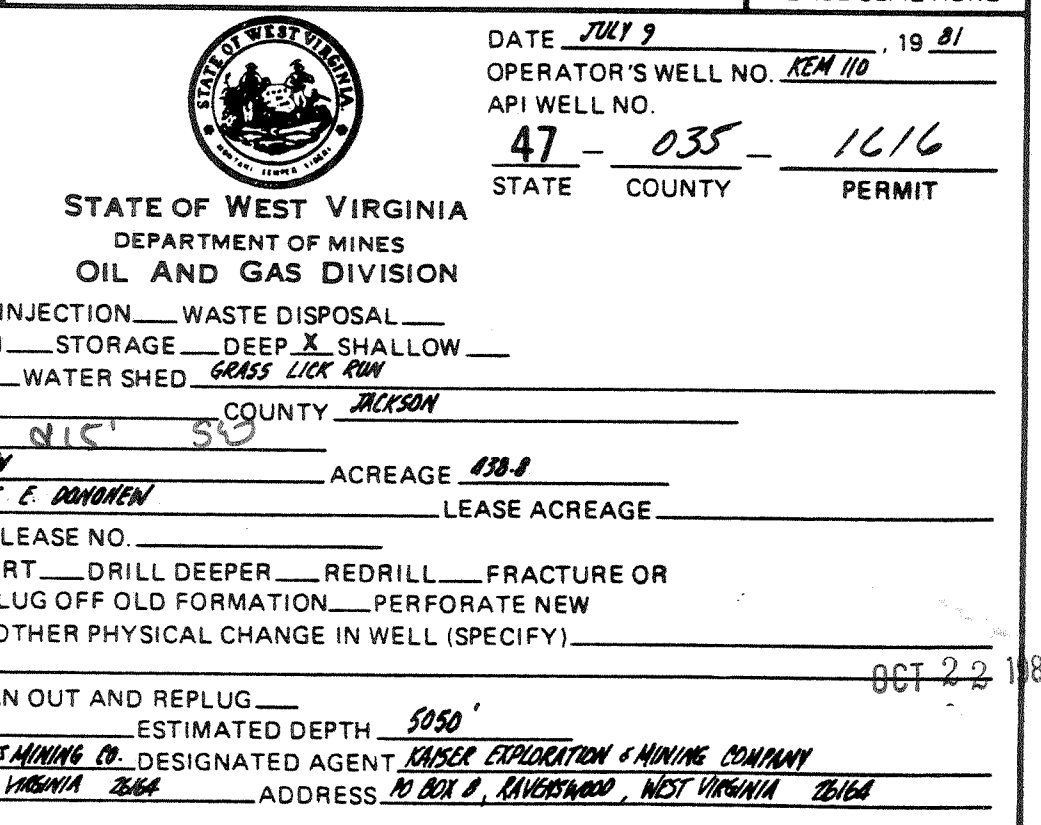 DATE JULY 9, 19 81
OPERATOR'S WELL NO. KEM 110
API WELL NO.
47 - 035 - 1616
STATE COUNTY PERMIT
STATE OF WEST VIRGINIA
MONTANI SEMPER LIBERI
STATE OF WEST VIRGINIA
DEPARTMENT OF MINES
OIL AND GAS DIVISION
INJECTION WASTE DISPOSAL
STORAGE DEEP X SHALLOW
WATER SHED GRASS LICK RUN
COUNTY JACKSON
ACREAGE
E. DONOHEW LEASE ACREAGE
LEASE NO.
RT DRILL DEEPER REDRILL FRACTURE OR
LUG OFF OLD FORMATION PERFORATE NEW
OTHER PHYSICAL CHANGE IN WELL (SPECIFY)
OCT 22 198
N OUT AND REPLUG
ESTIMATED DEPTH 5050'
& MINING CO. DESIGNATED AGENT KAISER EXPLORATION & MINING COMPANY
VIRGINIA 26164 ADDRESS PO BOX 8, RAVENSWOOD, WEST VIRGINIA 26164